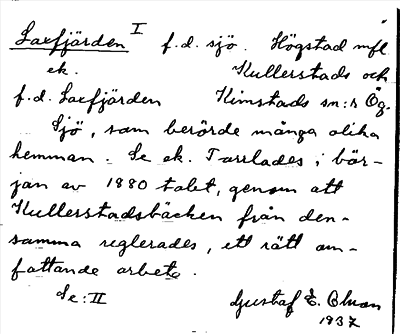 Laxfjärden I f.d. sjö. Högstad mfl
ek. Kullerstads och
f.d. Laxfjärden Kimstads sn:r Ög.
Sjö, som berörde många olika
hemman. Se ek. Torrlades i bör-
jan av 1880 talet, genom att
Kullerstadsbäcken från den-
samma reglerades, ett rätt om-
fattande arbete.
Se: II Gustaf E.
1937